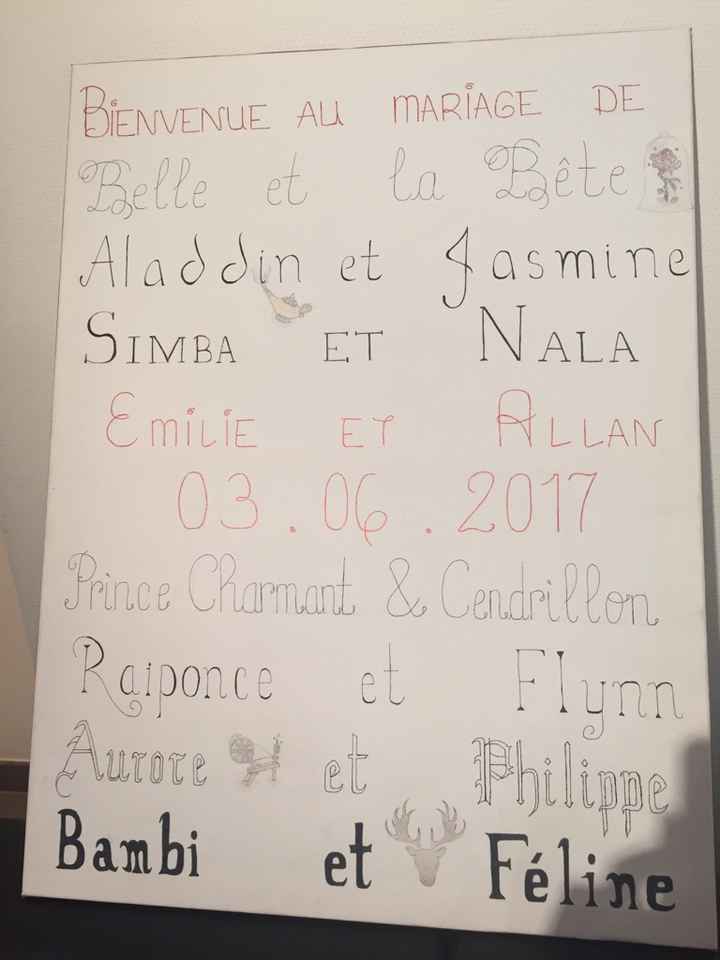 BiENVENUE AU MARiAGE DE
Belle et la Bête
Aladdin et Jasmine
SIMBA ET NALA
EMiLiE ET ALLAN
03.06.2017
Prince Charmant & Cendrillon
Raiponce et Flynn
Aurore et Philippe
Bambi et Féline